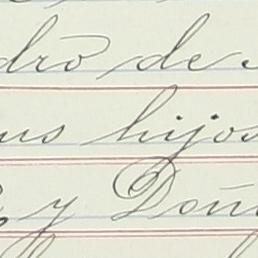 dro de
us hijos
y Doñ